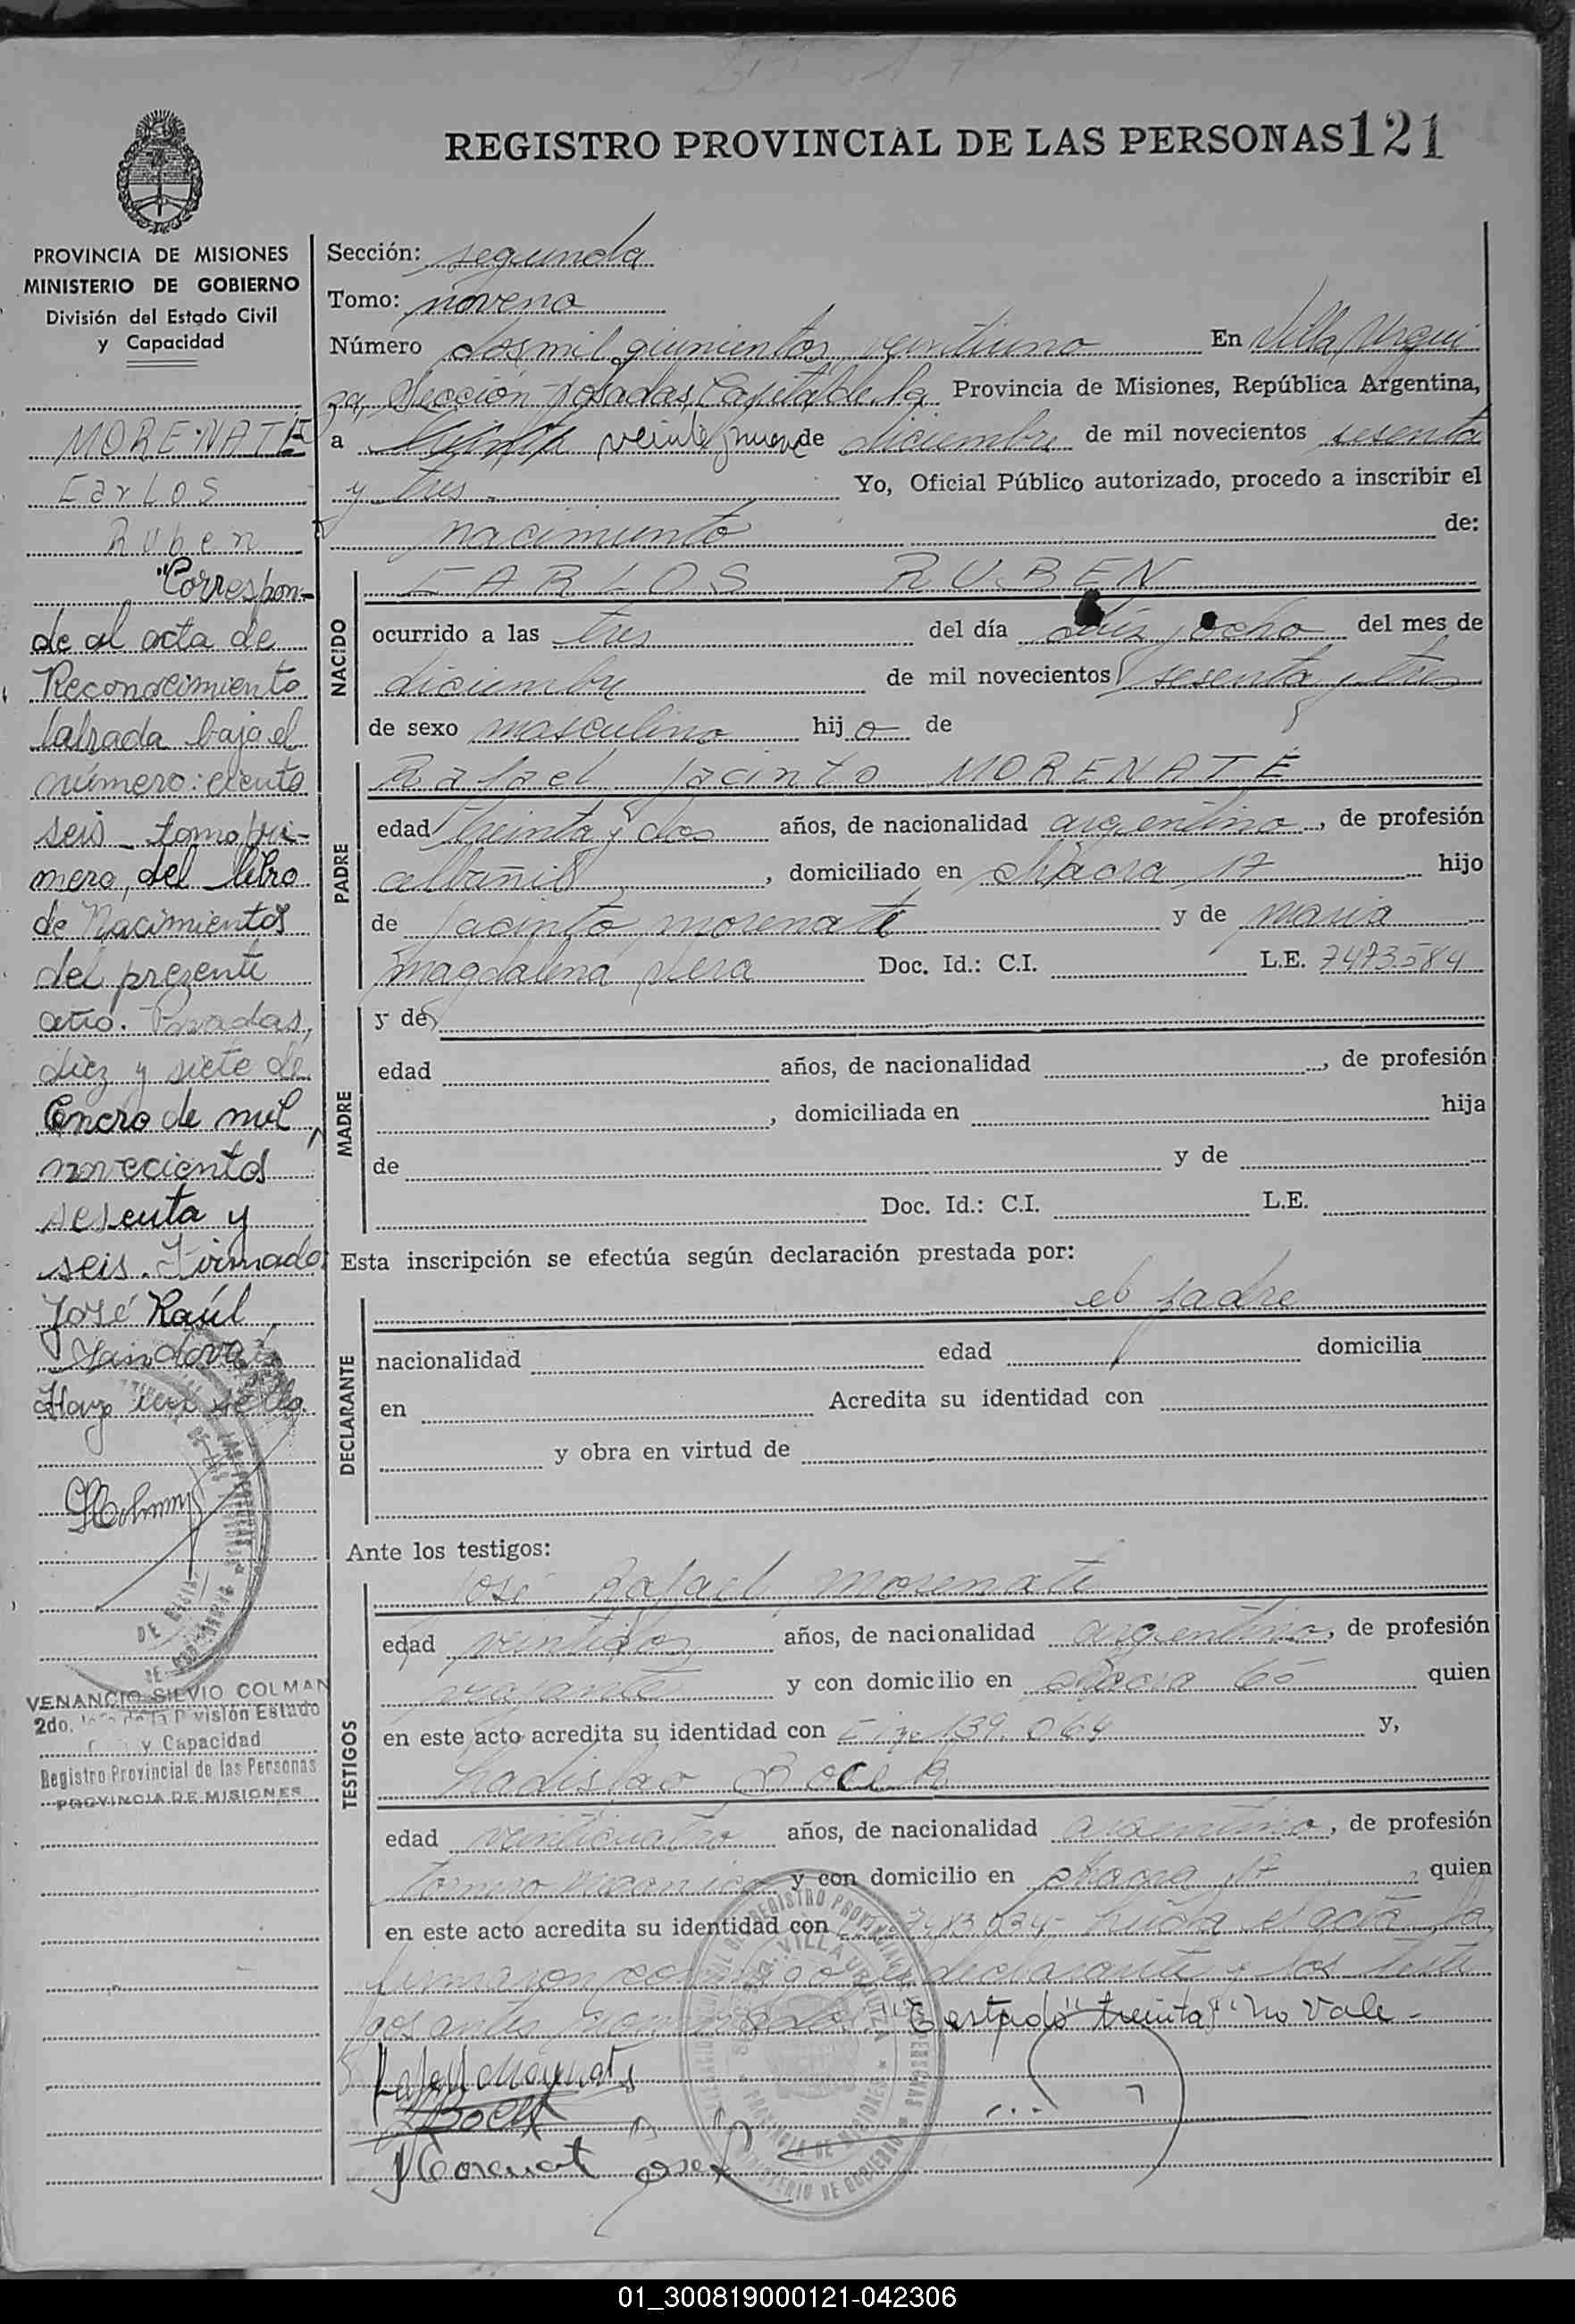 REGISTRO PROVINCIAL DE LAS PERSONAS 121
PROVINCIA DE MISIONES
MINISTERIO DE GOBIERNO
División del Estado Civil
y Capacidad
MORENATE
Carlos
Ruben
"Correspon-
de al acta de
Reconocimiento
labrada bajo el
número: ciento
seis - tomo pri-
mero, del libro
de Nacimientos
del presente
año. Posadas,
diez y siete de
Enero de mil
novecientos
sesenta y
seis. Firmado
José Raúl
Sandoval
Hay un sello.
VENANCIO SILVIO COLMAN
2do. Jefe de la División Estado
y Capacidad
Registro Provincial de las Personas
PROVINCIA DE MISIONES
Sección: segunda
Tomo: noveno
Número dos mil quinientos veintiuno En Villa Urqui
za, Sección Posadas, Capital de la Provincia de Misiones, República Argentina,
a treinta veinte y nueve de diciembre de mil novecientos sesenta
y tres.- Yo, Oficial Público autorizado, procedo a inscribir el
nacimiento de:
NACIDO
CARLOS RUBEN
ocurrido a las tres del día diez y ocho del mes de
diciembre de mil novecientos sesenta y tres
de sexo masculino hijo de
PADRE
Rafael Jacinto MORENATE
edad treinta y dos años, de nacionalidad argentino, de profesión
albañil, domiciliado en chacra 17 hijo
de Jacinto morenate y de maria
magdalena Vera Doc. Id.: C.I. L.E. 7473584
MADRE
y de
edad años, de nacionalidad , de profesión
, domiciliada en hija
de y de
Doc. Id.: C.I. L.E.
Esta inscripción se efectúa según declaración prestada por:
DECLARANTE
el padre
nacionalidad edad domicilia
en Acredita su identidad con
y obra en virtud de
Ante los testigos:
TESTIGOS
José Rafael morenate
edad veintidos años, de nacionalidad argentino, de profesión
y con domicilio en chacra 65 quien
en este acto acredita su identidad con 139.064 y,
Ladislao Bocek
edad veinticuatro años, de nacionalidad argentino, de profesión
tornero mecanico y con domicilio en chacra 17, quien
en este acto acredita su identidad con 7483034- Leida el acta la
firmaron conmigo el declarante y los testi
gos antes nombrados. "Testado" "treinta" no vale -
01_300819000121-042306